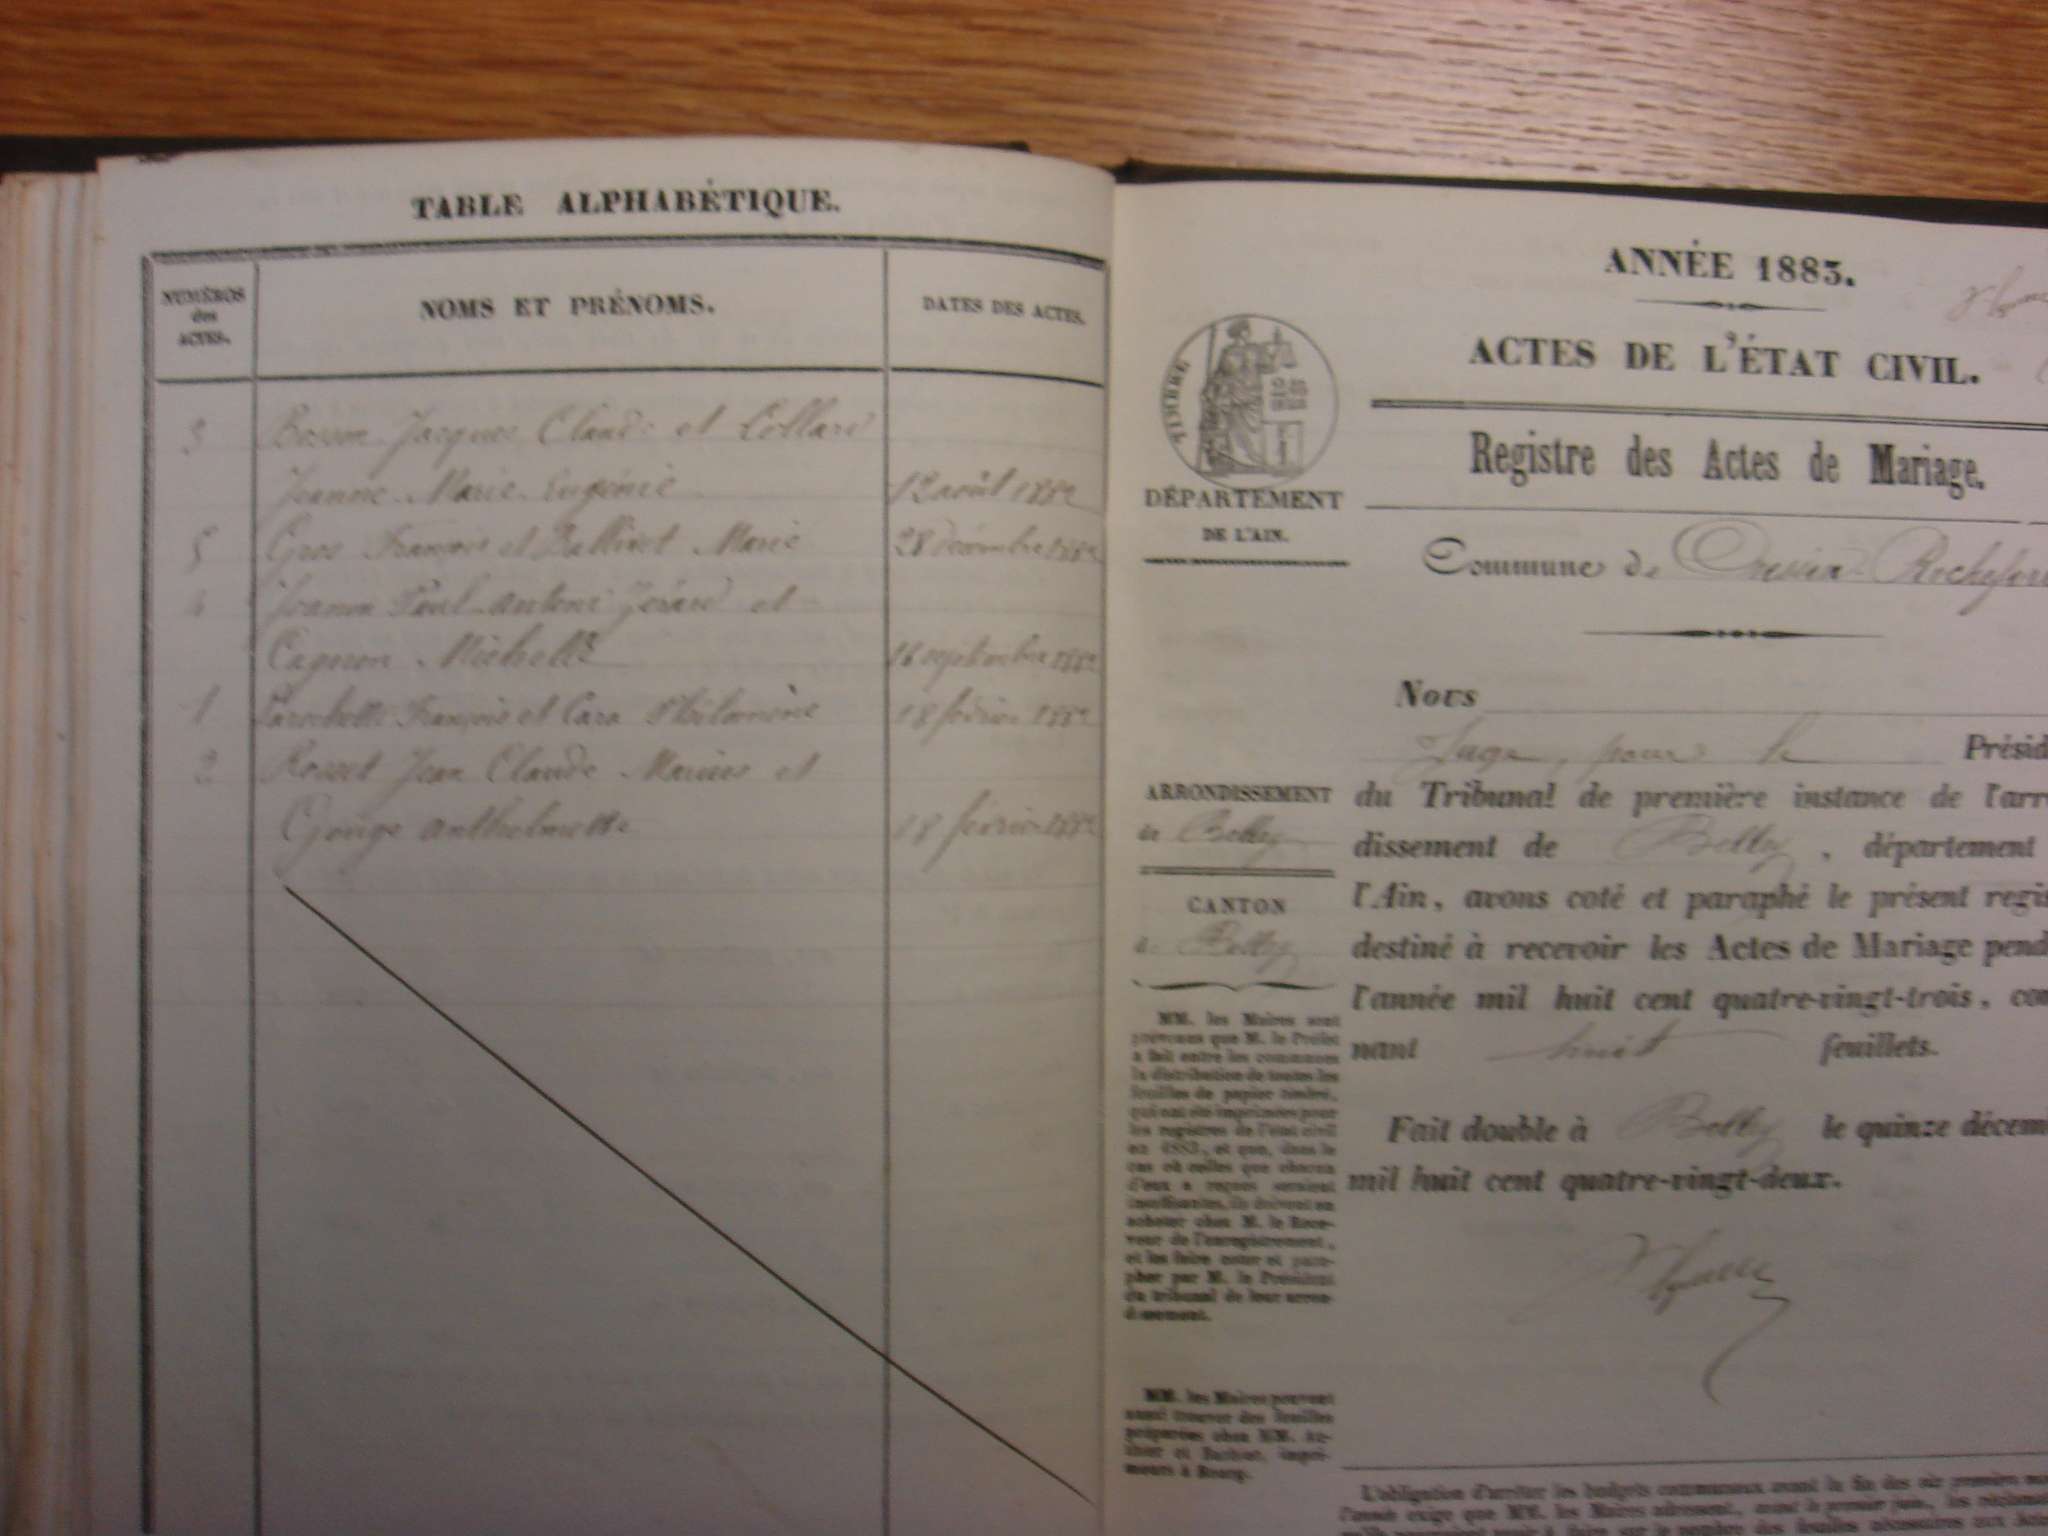 TABLE ALPHABÉTIQUE.
NUMÉROS
des
ACTES.
NOMS ET PRÉNOMS.
DATES DES ACTES.
3 Bosson Jacques Claude et Collard
Jeanne Marie Eugénie 12 août 1882
5 Gros François et Ballivet Marie 28 décembre 1882
4 Paul Antoine et
Michelle 16 septembre 1882
1 Larochette François et Cara Philomène 18 février 1882
2 Rosset Jean Claude Marius et
Gouge Anthelmette 18 février 1882
ANNÉE 1883.
ACTES DE L'ÉTAT CIVIL.
Registre des Actes de Mariage.
TIMBRE
DÉPARTEMENT
DE L'AIN.
Commune de Cressin-Rochefort
Nous
Juge, pour le Présid
du Tribunal de première instance de l'arr
dissement de Belley, département
l'Ain, avons coté et paraphé le présent regis
destiné à recevoir les Actes de Mariage pend
l'année mil huit cent quatre-vingt-trois, con
nant huit feuillets.
Fait double à Belley le quinze décem
mil huit cent quatre-vingt-deux.
ARRONDISSEMENT
de Belley
CANTON
de Belley
MM. les Maires sont
prévenus que M. le Préfet
a fait entre les communes
la distribution de toutes les
feuilles de papier timbré,
qui ont été imprimées pour
les registres de l'état civil
en 1883, et que, dans le
cas où celles que chacun
d'eux a reçues seraient
insuffisantes, ils doivent en
acheter chez M. le Rece-
veur de l'enregistrement,
et les faire coter et para-
pher par M. le Président
du tribunal de leur arron-
dissement.
MM. les Maires pourront
aussi trouver des feuilles
préparées chez MM.
et imprimeurs à Bourg.
L'obligation d'arrêter les budgets communaux avant la fin des six premiers mo
l'année exige que MM. les Maires adressent, avant le premier juin, les